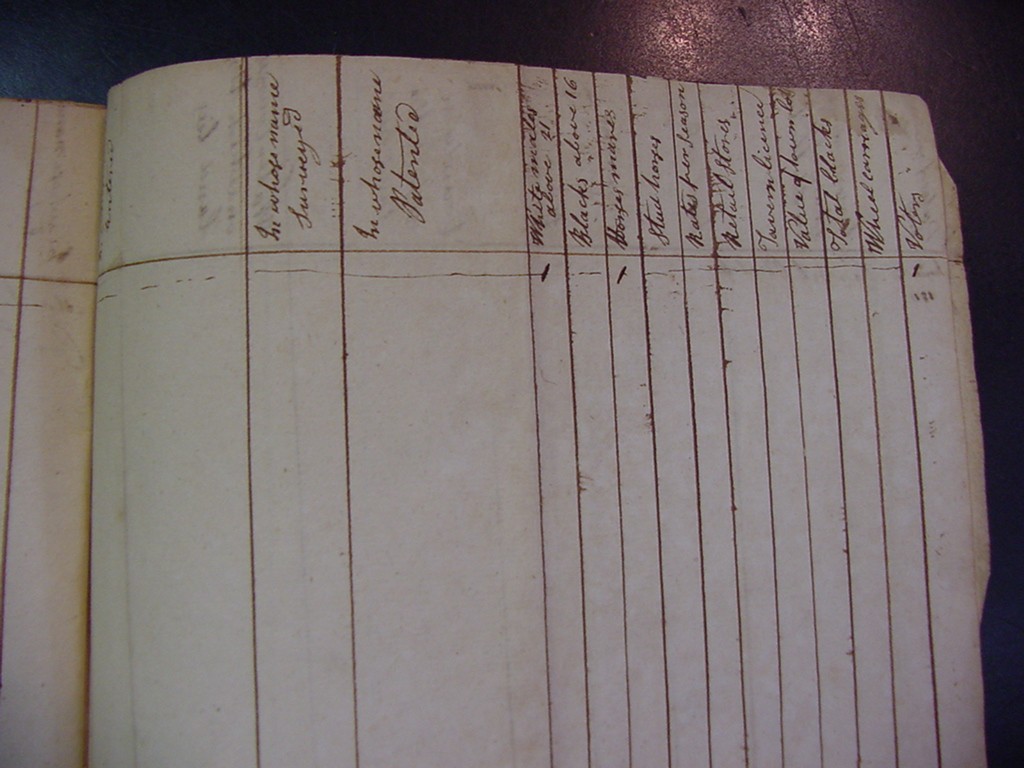 In whose name
Surveyed
In whose name
Patented
White males
above 21
Blacks above 16
Horses mares
Stud horses
Rates per season
Retail Stores
Tavern licence
Value of town lots
Total blacks
Wheel carriages
Voters